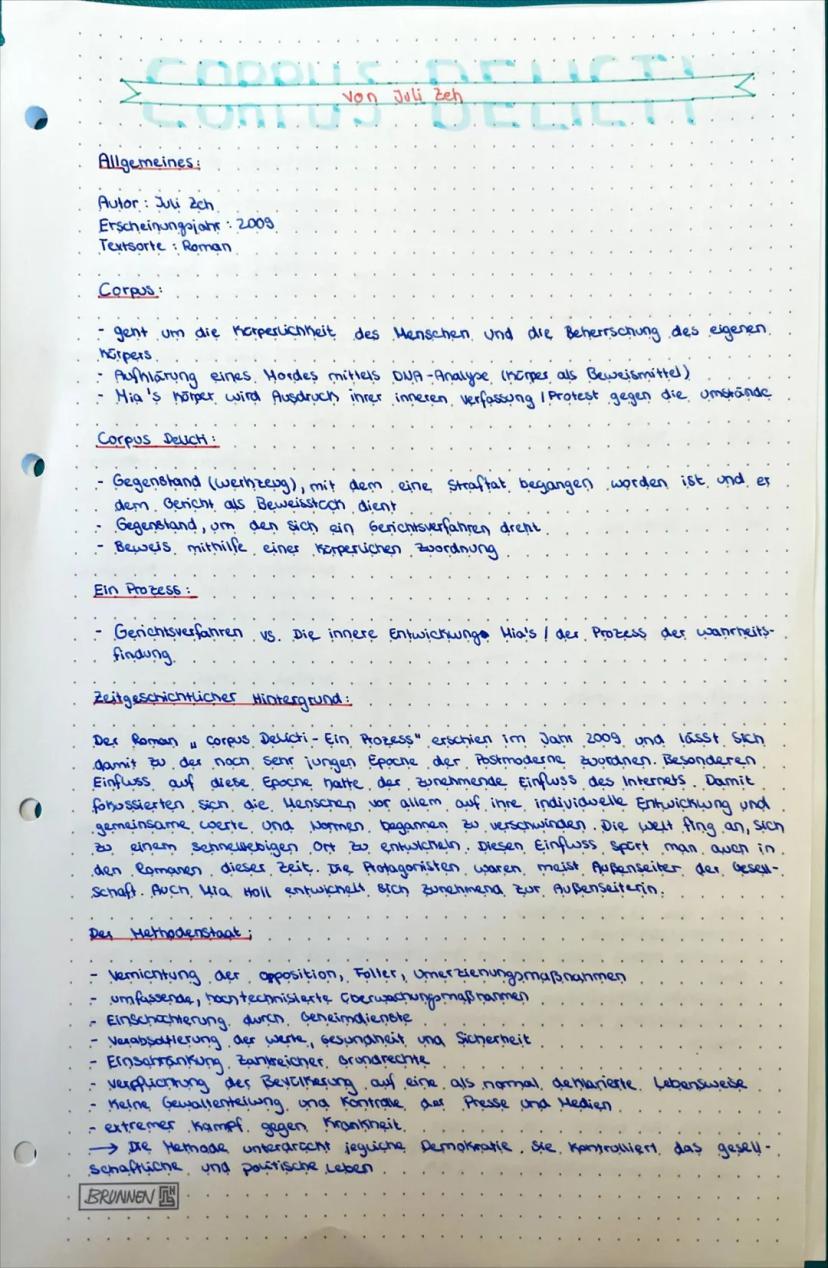 CORPUS DELICTI
von Juli Zeh
Allgemeines:
Autor: Juli Zeh
Erscheinungsjahr: 2009
Textsorte: Roman
Corpus:
- geht um die Körperlichkeit des Menschen und die Beherrschung des eigenen
Körpers
- Aufklärung eines Mordes mittels DNA-Analyse (Körper als Beweismittel)
- Mia's Körper wird Ausdruck ihrer inneren Verfassung / Protest gegen die Umstände
Corpus Delicti:
- Gegenstand (Werkzeug), mit dem eine Straftat begangen worden ist und er
dem Gericht als Beweisstück dient
- Gegenstand, um den sich ein Gerichtsverfahren dreht
- Beweis mithilfe einer körperlichen Zuordnung
Ein Prozess:
- Gerichtsverfahren vs. Die innere Entwicklung Mia's / der Prozess der Wahrheits-
findung
Zeitgeschichtlicher Hintergrund:
Der Roman „Corpus Delicti - Ein Prozess" erschien im Jahr 2009 und lässt sich
damit zu der noch sehr jungen Epoche der Postmoderne zuordnen. Besonderen
Einfluss auf diese Epoche hatte der zunehmende Einfluss des Internets. Damit
fokussierten sich die Menschen vor allem auf ihre individuelle Entwicklung und
gemeinsame Werte und Normen begannen zu verschwinden. Die Welt fing an, sich
zu einem schnelllebigen Ort zu entwickeln. Diesen Einfluss spürt man auch in
den Romanen dieser Zeit. Die Protagonisten waren meist Außenseiter der Gesell-
schaft. Auch Mia Holl entwickelt sich zunehmend zur Außenseiterin.
Der Methodenstaat:
- Vernichtung der Opposition, Folter, Umerziehungsmaßnahmen
- umfassende, hochtechnisierte Überwachungsmaßnahmen
- Einschüchterung durch Geheimdienste
- Verabsolutierung der Werte, Gesundheit und Sicherheit
- Einschränkung zahlreicher Grundrechte
- Verpflichtung der Bevölkerung auf eine als normal deklarierte Lebensweise
- Keine Gewaltenteilung und Kontrolle der Presse und Medien
- extremer Kampf gegen Krankheit
→ Die Methode unterdrückt jegliche Demokratie. Sie kontrolliert das gesell-
schaftliche und politische Leben
BRUNNEN